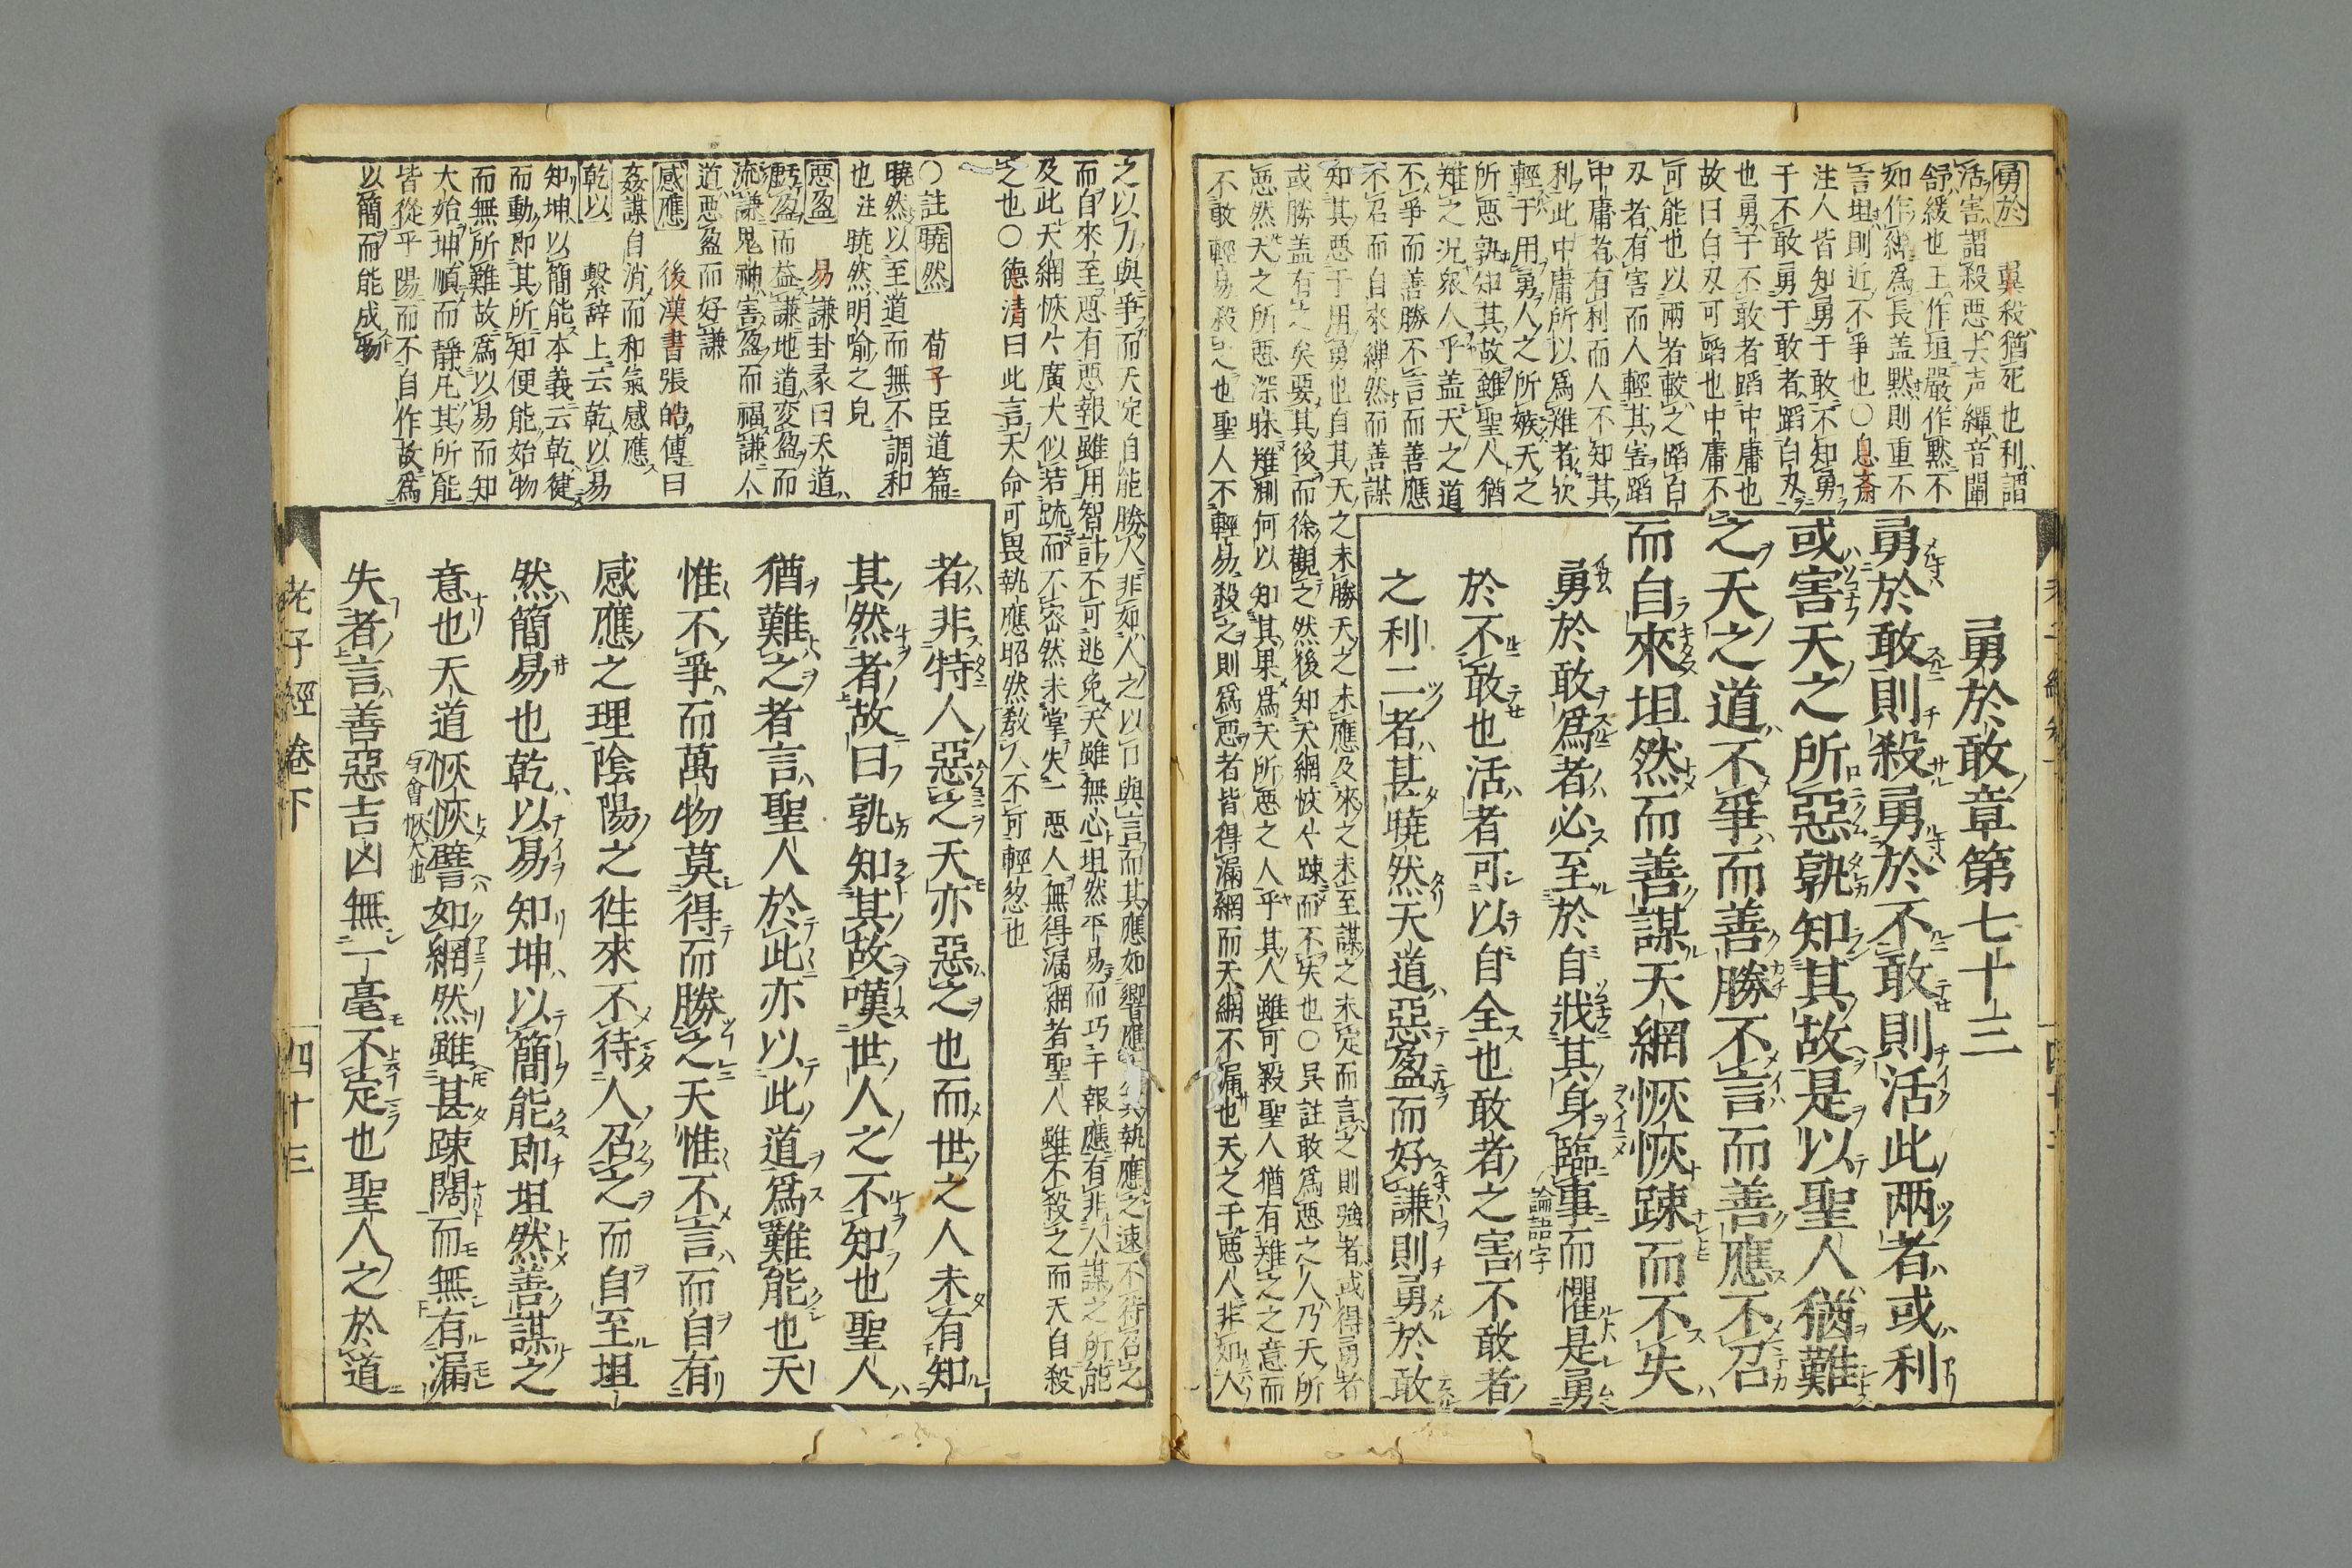 勇於敢章第七十三
勇於敢則殺勇於不敢則活此兩者或利
或害天之所惡孰知其故是以聖人猶難
之天之道不爭而善勝不言而善應不召
而自來坦然而善謀天網恢恢踈而不失
勇於敢爲者必至於自戕其身臨事而懼是勇
論語字
於不敢也活者可以自全也敢者之害不敢者
之利二者甚曉然天道惡盈而好謙則勇於敢
勇於 冀殺猶死也利謂
活害謂殺惡去声繟音闡
舒緩也王作坦嚴作黙不
如作繟爲長盖黙則重不
言坦則近不爭也○息斎
注人皆知勇于敢不知勇
于不敢勇于敢者蹈白刄
也勇于不敢者蹈中庸也
故曰白刄可蹈也中庸不
可能也以兩者較之蹈白
刄者有害而人輕其害蹈
中庸者有利而人不知其
利此中庸所以爲难者欤
輕于用勇人之所嫉天之
所惡孰知其故雖聖人猶
难之况衆人乎盖天之道
不爭而善勝不言而善應
不召而自來繟然而善謀
知其惡于用勇也自其天之未勝天之未應及來之未至謀之未定而言之則強者或得勇者
或勝盖有之矣要其後而徐觀之然後知天網恢々踈而不失也○呉註敢爲惡之人乃天所
惡然天之所惡深昧难測何以知其果爲天所惡之人乎其人雖可殺聖人猶有难之之意而
不敢輕易殺之也聖人不輕易殺之則爲惡者皆得漏網而天網不漏也天之于惡人非如人
之以力與爭而天定自能勝人非如人之以口與言而其應如響應之速不待召之
而自來至惡有惡報雖用智計不可逃免天雖無心坦然平易而巧于報應有非人謀之所能
及此天網恢々廣大似若踈而不密然未掌失一惡人無得漏網者聖人雖不殺之而天自殺
之也○德清曰此言天命可畏執應昭然敎人不可輕忽也
○註曉然 荀子臣道篇
曉然以至道而無不調和
也注 曉然明喻之皃
惡盈 易謙卦彖曰天道
虧盈而益謙地道変盈而
流謙鬼神害盈而福謙人
道惡盈而好謙
感應 後漢書張皓傳曰
姦謀自消而和氣感應
乾以 繫辞上云乾以易
知坤以簡能本義云乾健
而動即其所知便能始物
而無所難故爲以易而知
大始坤順而靜凡其所能
皆從乎陽而不自作故爲
以簡而能成物
者非特人惡之天亦惡之也而世之人未有知
其然者故曰孰知其故嘆世人之不知也聖人
猶難之者言聖人於此亦以此道爲難能也天
惟不爭而萬物莫得而勝之天惟不言而自有
感應之理陰陽之徃來不待人召之而自至坦
然簡易也乾以易知坤以簡能即坦然善謀之
意也天道恢恢譬如網然雖甚踈闊而無有漏
匀會恢大也
失者言善惡吉凶無一毫不定也聖人之於道
老子經卷下
四十三